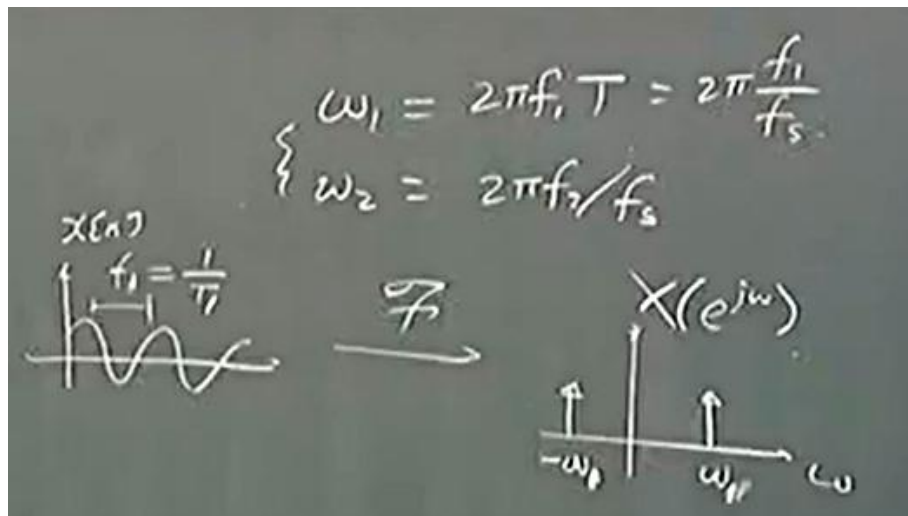 ω₁ = 2πf₁T = 2π f₁/fₛ
ω₂ = 2πf₂/fₛ
x[n]
f₁ = 1/T₁
ℱ
X(e^{jω})
-ω₁
ω₁
ω